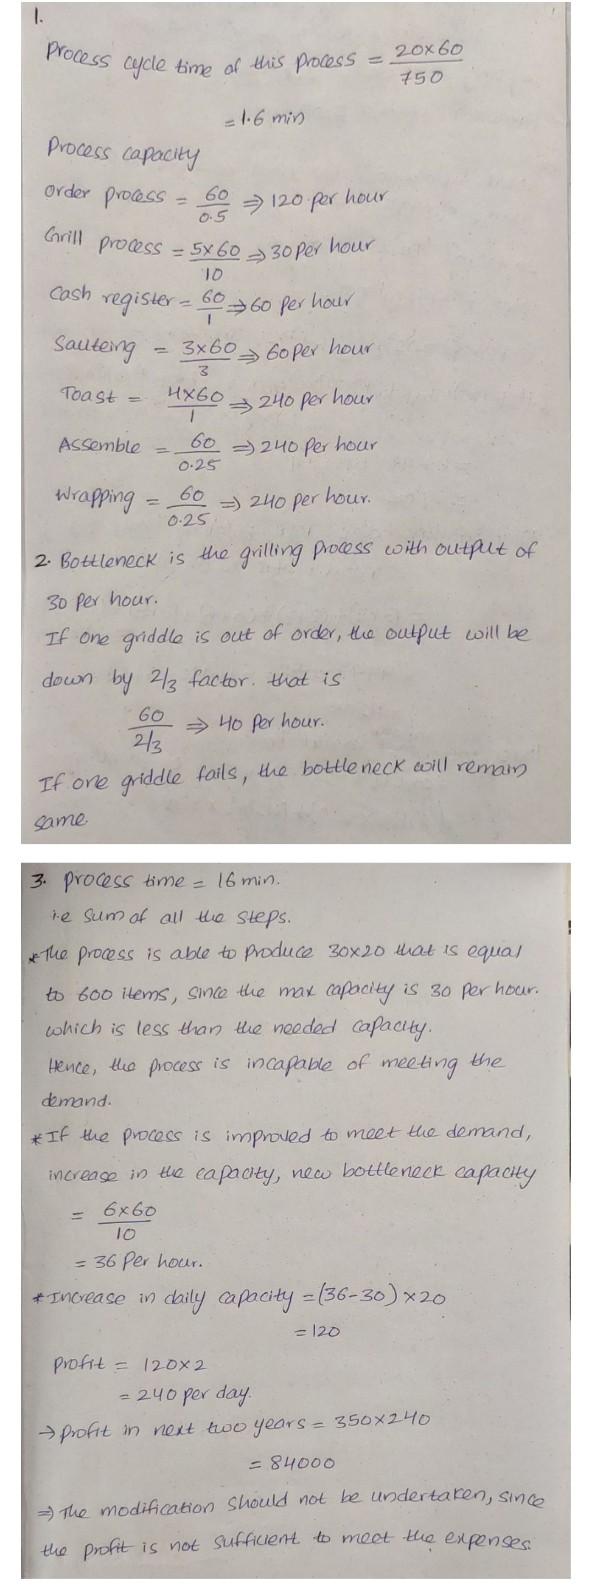 1.
Process cycle time of this process = 20x60 / 750
= 1.6 min
Process capacity
Order process = 60 / 0.5 ⇒ 120 per hour
Grill process = 5x60 / 10 ⇒ 30 per hour
Cash register = 60 / 1 ⇒ 60 per hour
Sauteing = 3x60 / 3 ⇒ 60 per hour
Toast = 4x60 / 1 ⇒ 240 per hour
Assemble = 60 / 0.25 ⇒ 240 per hour
Wrapping = 60 / 0.25 ⇒ 240 per hour.
2. Bottleneck is the grilling process with output of
30 per hour.
If one griddle is out of order, the output will be
down by 2/3 factor. that is
60 / 2/3 ⇒ 40 per hour.
If one griddle fails, the bottleneck will remain
same.
3. Process time = 16 min.
i.e sum of all the steps.
* The process is able to produce 30x20 that is equal
to 600 items, since the max capacity is 30 per hour.
which is less than the needed capacity.
Hence, the process is incapable of meeting the
demand.
* If the process is improved to meet the demand,
increase in the capacity, new bottleneck capacity
= 6x60 / 10
= 36 per hour.
* Increase in daily capacity = (36-30) x 20
= 120
Profit = 120x2
= 240 per day.
→ Profit in next two years = 350x240
= 84000
⇒ The modification should not be undertaken, since
the profit is not sufficient to meet the expenses.